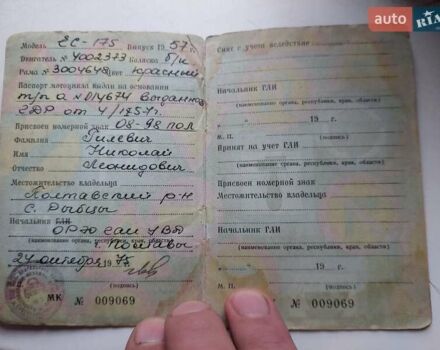 Модель ЕС-175 Выпуск 1957 г.
Двигатель № 4002373 Коляска б/к
Рама № 3004648 Цвет красный
Паспорт мотоцикла выдан на основании
т/п а № 014674 выданного
ГДР от 4/1957 г.
Присвоен номерной знак 08-98 пол
Фамилия Гилевич
Имя Николай
Отчество Леонидович
Местожительство владельца
Полтавский р-н
с. Рыбцы
Начальник ГАИ
(наименование органа, республики, края, области)
г. Полтавы
24 октября 1975
(подпись)
МК № 009069
auto RIA
Снят с учета вследствие
Начальник ГАИ
(наименование органа, республики, края, области)
19 г.
М. П. (подпись)
Принят на учет ГАИ
(наименование органа, республики, края, области)
Присвоен номерной знак
Местожительство владельца
Начальник ГАИ
(наименование органа, республики, края, области)
19 г.
М. П. (подпись)
МК № 009069